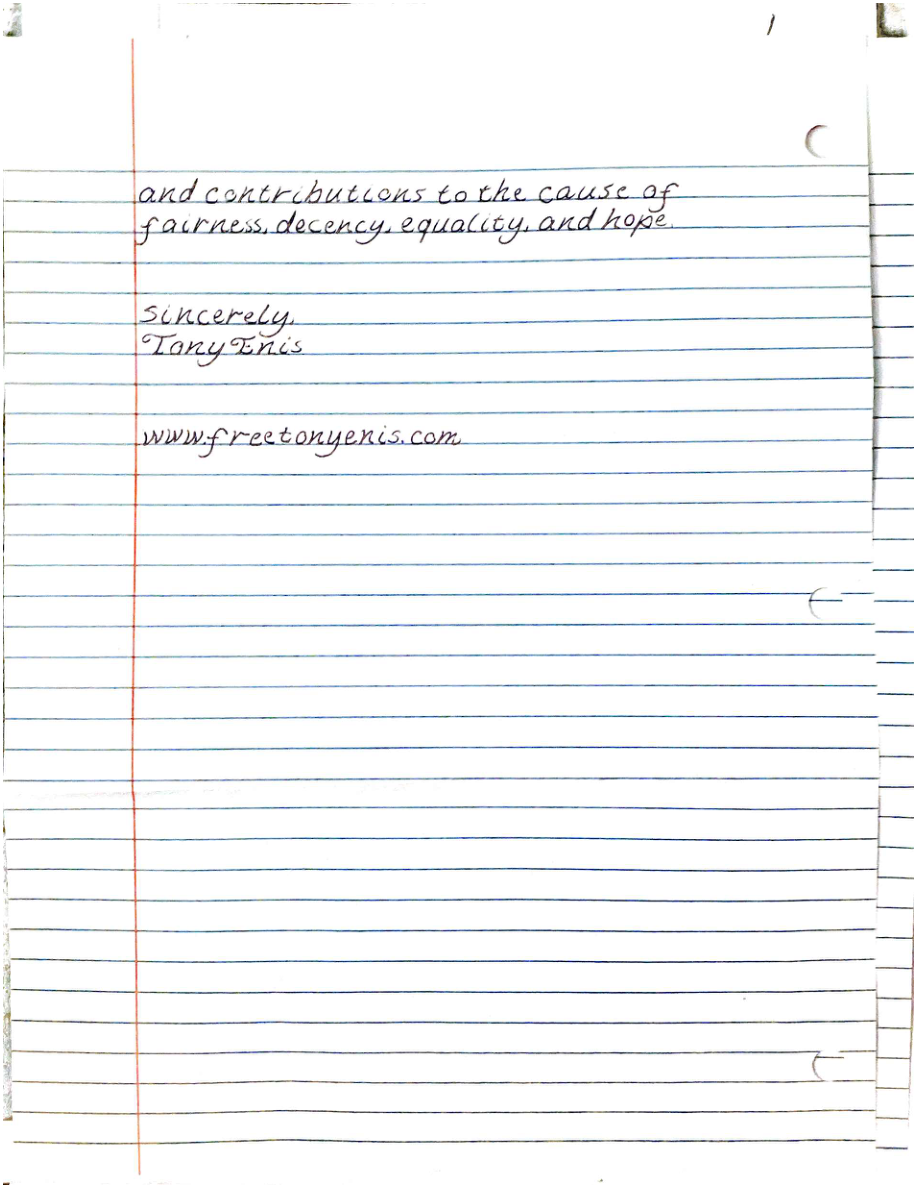 1
and contributions to the cause of
fairness, decency, equality, and hope.
Sincerely,
Tony Enis
www.freetonyenis.com